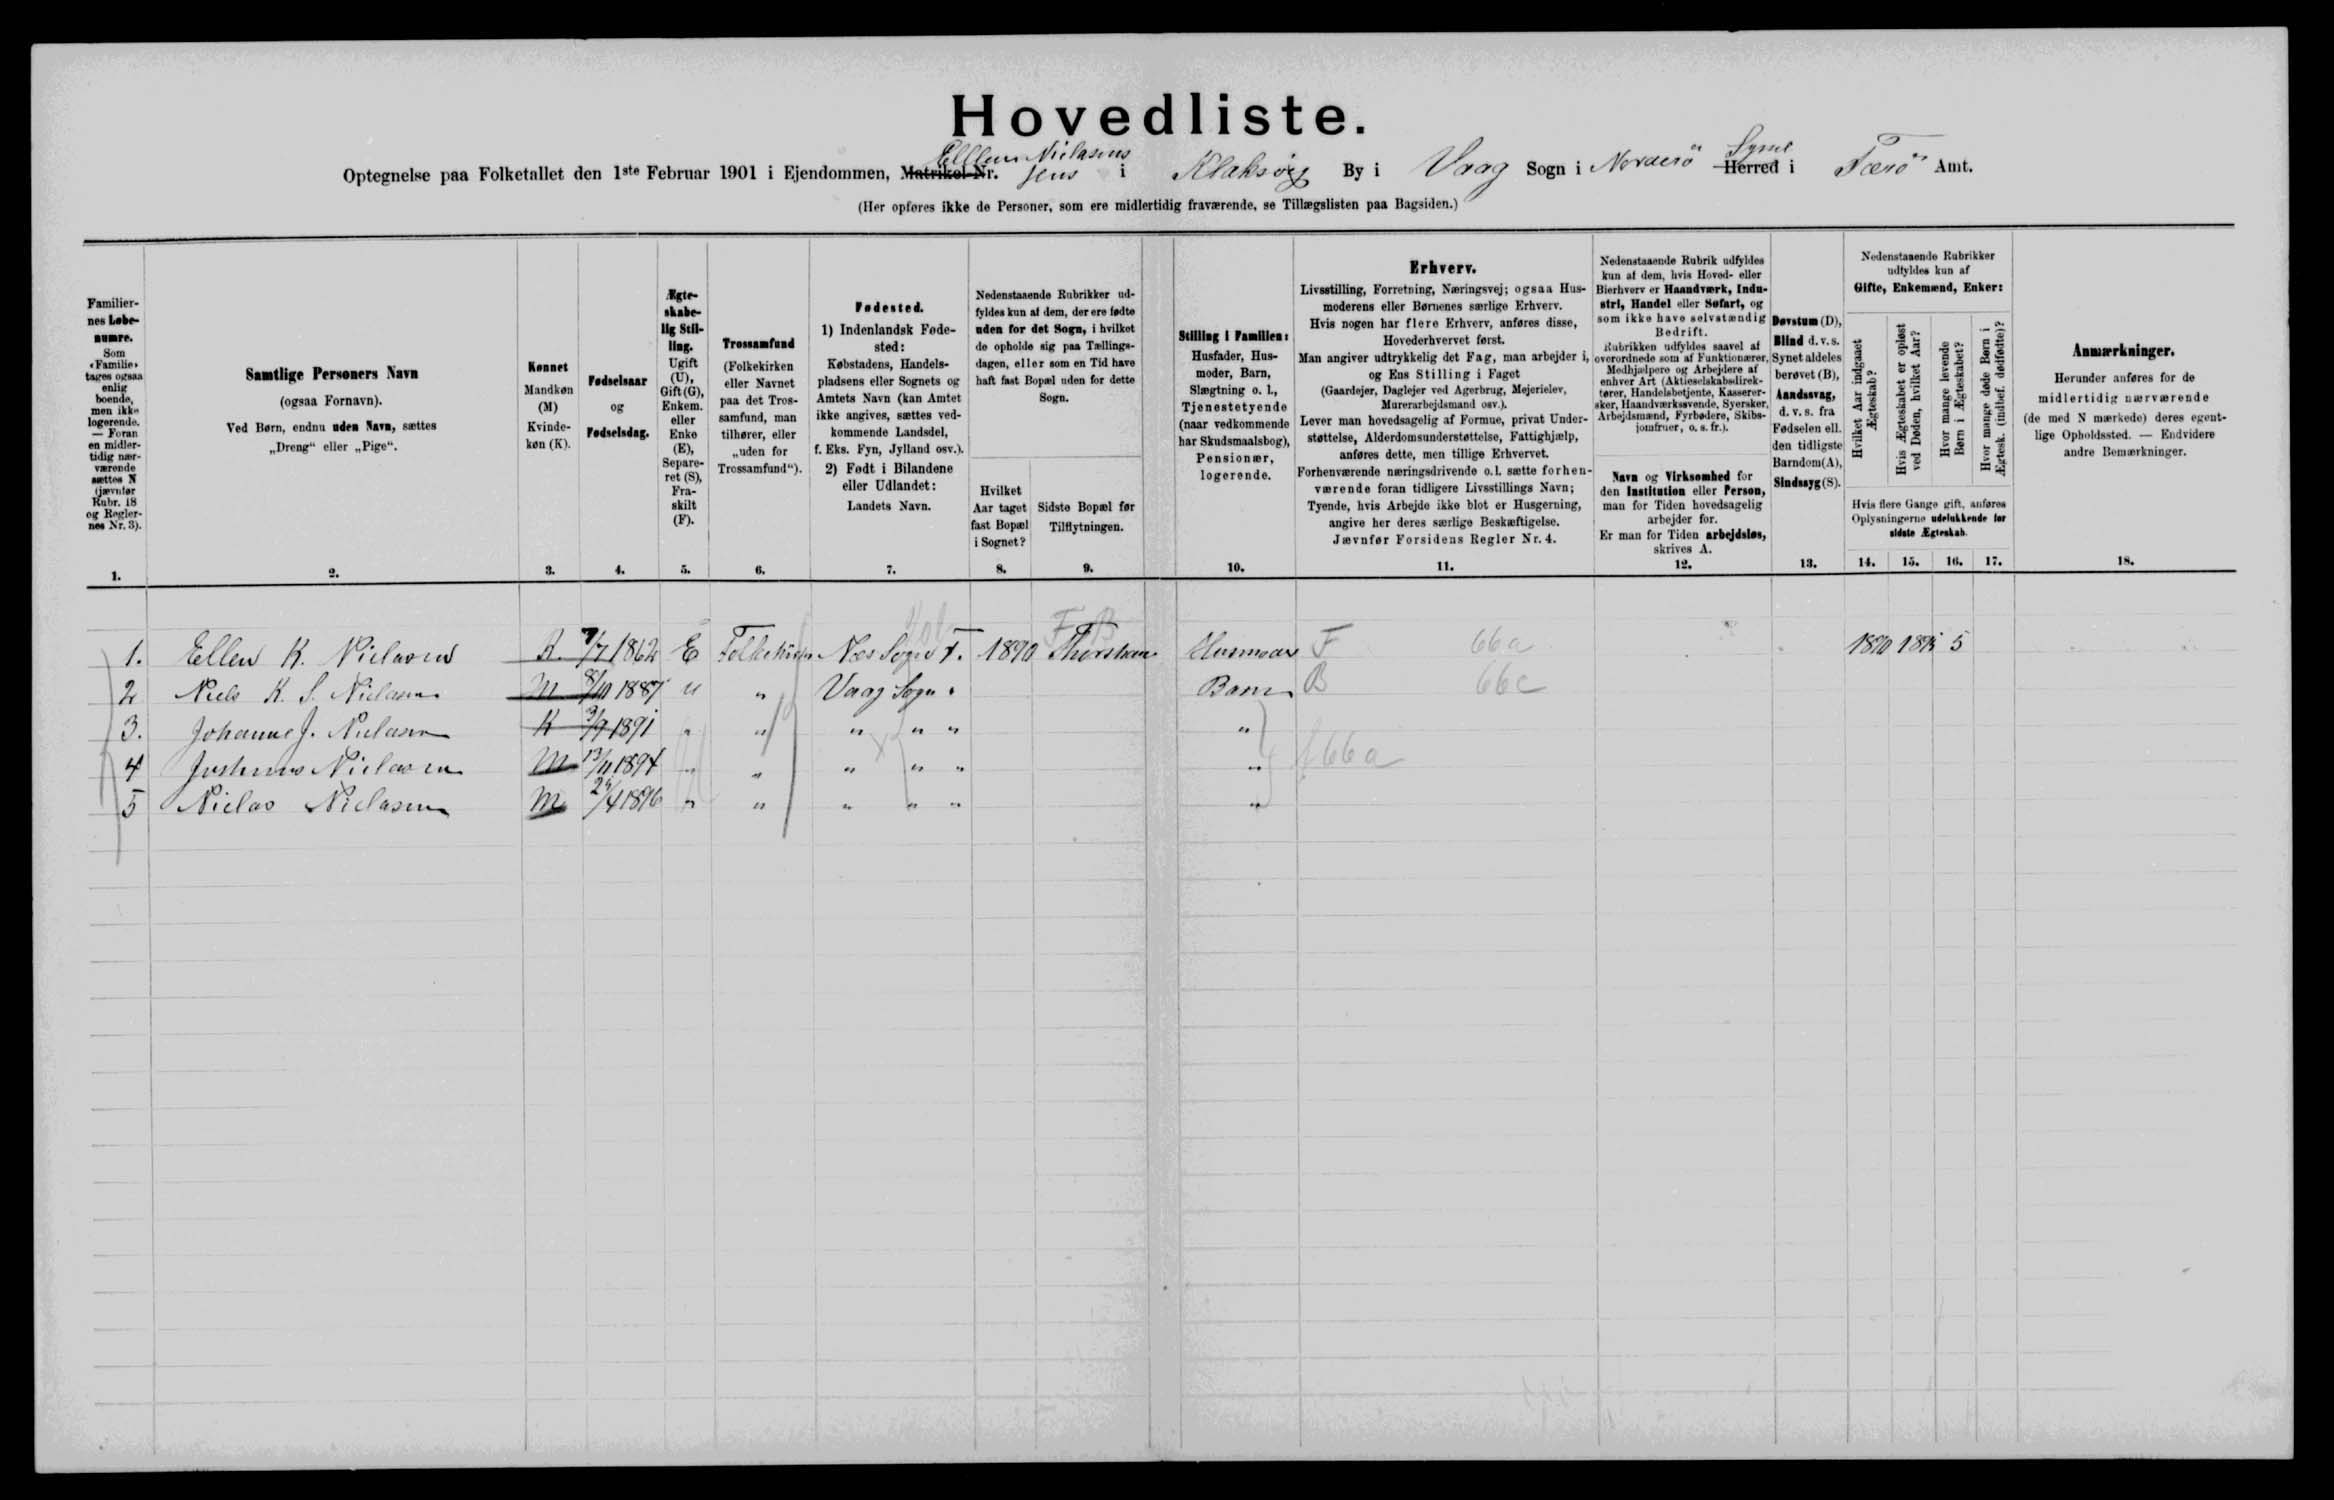 Hovedliste.
Optegnelse paa Folketallet den 1ste Februar 1901 i Ejendommen, Matrikel-Nr. Elllen Nielasens Jens i Klaksvig By i Vaag Sogn i Norderö Syssel Herred i Færö Amt.
(Her opføres ikke de Personer, som ere midlertidig fraværende, se Tillægslisten paa Bagsiden.)
Familier-
nes Løbe-
numre.
Som
«Familie»
tages ogsaa
enlig
boende,
men ikke
logerende.
— Foran
en midler-
tidig nær-
værende
sættes N
(jævnfør
Rubr. 18
og Regler-
nes Nr. 3).
1.
Samtlige Personers Navn
(ogsaa Fornavn).
Ved Børn, endnu uden Navn, sættes
„Dreng“ eller „Pige“.
2.
Kønnet
Mandkøn
(M)
Kvinde-
køn (K).
3.
Fødselsaar
og
Fødselsdag.
4.
Ægte-
skabe-
lig Stil-
ling.
Ugift
(U),
Gift (G),
Enkem.
eller
Enke
(E),
Separe-
ret (S),
Fra-
skilt
(F).
5.
Trossamfund
(Folkekirken
eller Navnet
paa det Tros-
samfund, man
tilhører, eller
„uden for
Trossamfund“).
6.
Fødested.
1) IndenlandskFøde-
sted:
Købstadens, Handels-
pladsens eller Sognets og
Amtets Navn (kan Amtet
ikke angives, sættes ved-
kommende Landsdel,
f. Eks. Fyn, Jylland osv.).
2) Født i Bilandene
eller Udlandet:
Landets Navn.
7.
Nedenstaaende Rubrikker ud-
fyldes kun af dem, der ere fødte
uden for det Sogn, i hvilket
de opholde sig paa Tællings-
dagen, eller som en Tid have
haft fast Bopæl uden for dette
Sogn.
Hvilket
Aar taget
fast Bopæl
i Sognet?
8.
Sidste Bopæl før
Tilflytningen.
9.
Stilling i Familien:
Husfader, Hus-
moder, Barn,
Slægtning o. l.,
Tjenestetyende
(naar vedkommende
har Skudsmaalsbog),
Pensionær,
logerende.
10.
Erhverv.
Livsstilling, Forretning, Næringsvej; ogsaa Hus-
moderens eller Børnenes særlige Erhverv.
Hvis nogen har flere Erhverv, anføres disse,
Hovederhvervet først.
Man angiver udtrykkelig det Fag, man arbejder i,
og Ens Stilling i Faget
(Gaardejer, Daglejer ved Agerbrug, Mejerielev,
Murerarbejdsmand osv.).
Lever man hovedsagelig af Formue, privat Under-
støttelse, Alderdomsunderstøttelse, Fattighjælp,
anføres dette, men tillige Erhvervet.
Forhenværende næringsdrivende o. l. sætte forhen-
værende foran tidligere Livsstillings Navn;
Tyende, hvis Arbejde ikke blot er Husgerning,
angive her deres særlige Beskæftigelse.
Jævnfør Forsidens Regler Nr. 4.
11.
Nedenstaaende Rubrik udfyldes
kun af dem, hvis Hoved- eller
Bierhverv er Haandværk, Indu-
stri, Handel eller Søfart, og
som ikke have selvstændig
Bedrift.
Rubrikken udfyldes saavel af
overordnede som af Funktionærer,
Medhjælpere og Arbejdere af
enhver Art (Aktieselskabsdirek-
tører, Handelsbetjente, Kasserer-
sker, Haandværkssvende, Syersker,
Arbejdsmænd, Fyrbødere, Skibs-
jomfruer, o. s. fr.).
Navn og Virksomhed for
den Institution eller Person,
man for Tiden hovedsagelig
arbejder for.
Er man for Tiden arbejdsløs,
skrives A.
12.
Døvstum (D),
Blind d. v. s.
Synet aldeles
berøvet (B),
Aandssvag,
d. v. s. fra
Fødselen ell.
den tidligste
Barndom(A),
Sindssyg (S).
13.
Nedenstaaende Rubrikker
udfyldes kun af
Gifte, Enkemænd, Enker:
Hvilket Aar indgaaet
Ægteskab?
Hvis Ægteskabet er opløst
ved Døden, hvilket Aar?
Hvor mange levende
Børn i Ægteskabet?
Hvor mange døde Børn i
Ægtesk. (indbef. dødfødte)?
Hvis flere Gange gift, anføres
Oplysningerne udelukkende for
sidste Ægteskab.
14. 15. 16. 17.
Anmærkninger.
Herunder anføres for de
midlertidig nærværende
(de med N mærkede) deres egent-
lige Opholdssted. — Endvidere
andre Bemærkninger.
18.
F B
1. Ellen K. Nielasen K. 7/7 1862 E Folkekirken Næs Sogn F. 1890 Thorshavn Husmoder F 66a 1890 5
2 Niels K. S. Nielasen M 8/11 1887 U " Vaag Sogn " Barn B 66c
3. Johanne J. Nielasen K 3/9 1891 " " " " " "
4 Justinus Nielasen M 13/11 1894 " " " " " " f 66a
5 Nielas Nielasen M 24/4 1896 " " " " " "